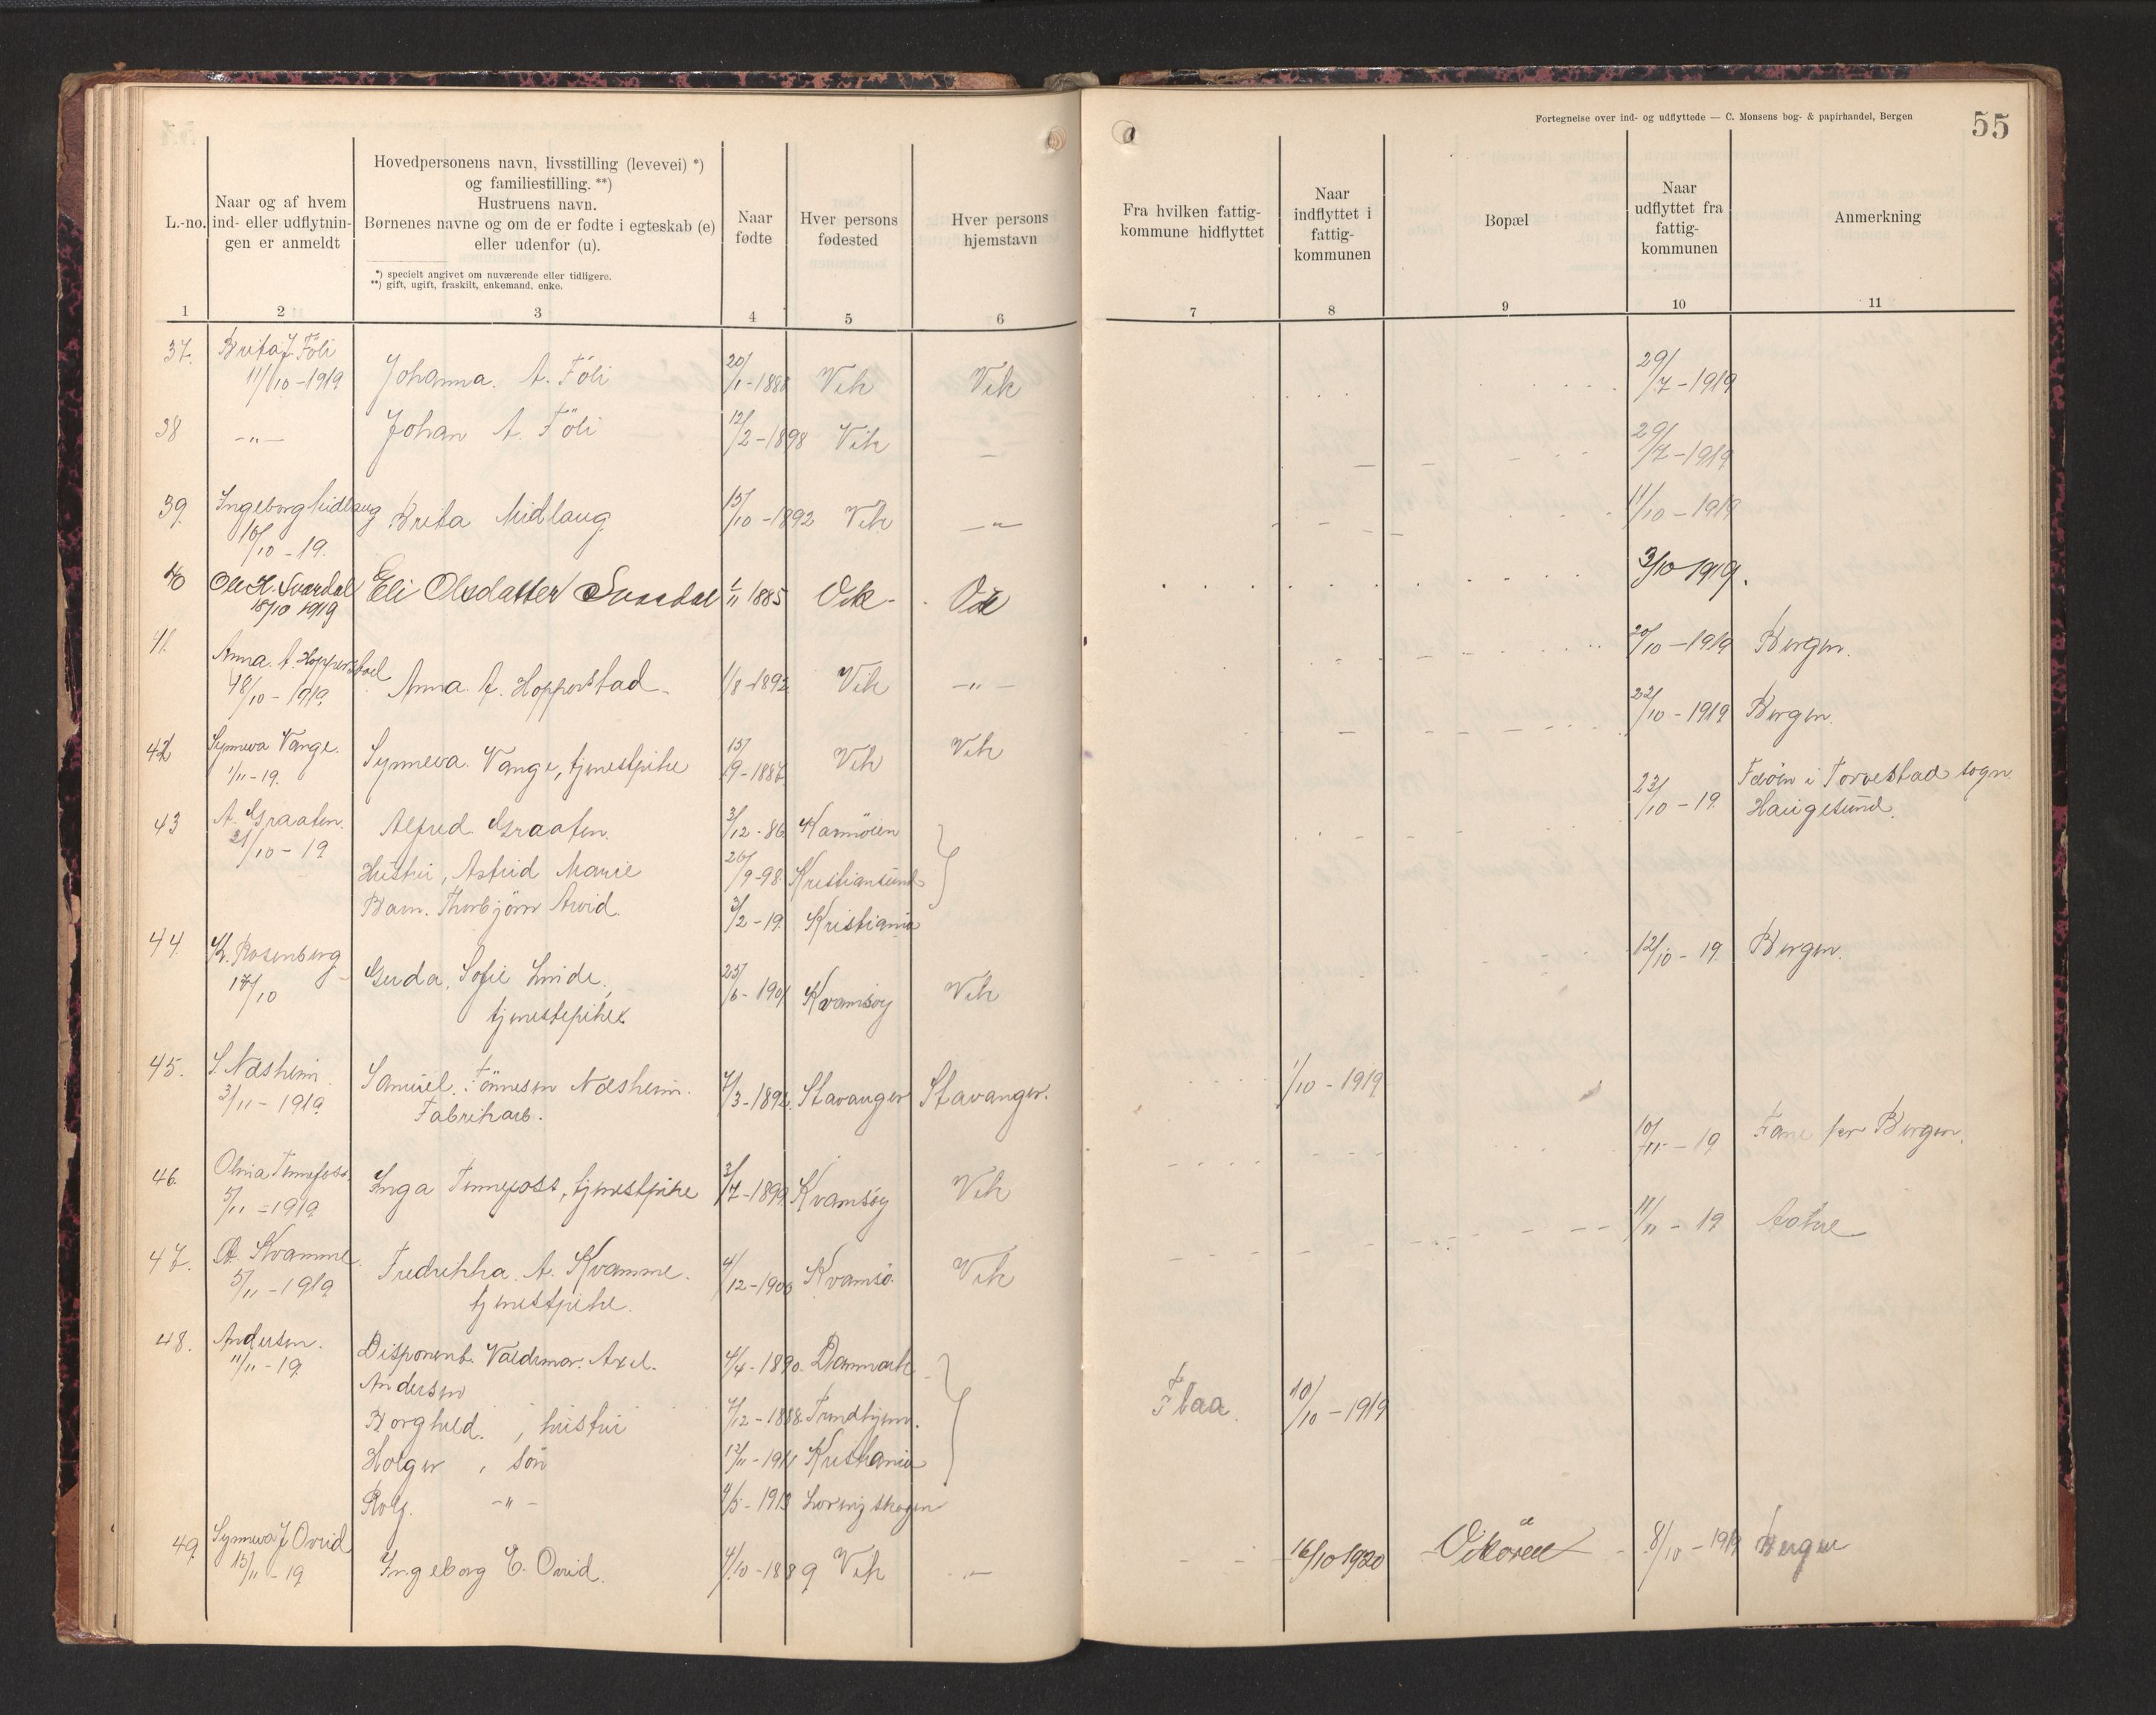 Fortegnelse over ind- og udflyttede — C. Monsens bog- & papirhandel, Bergen
55
L.-no.
Naar og af hvem
ind- eller udflytnin-
gen er anmeldt
Hovedpersonens navn, livsstilling (levevei) *)
og familiestilling. **)
Hustruens navn.
Børnenes navne og om de er fødte i egteskab (e)
eller udenfor (u).
*) specielt angivet om nuværende eller tidligere.
**) gift, ugift, fraskilt, enkemand, enke.
Naar
fødte
Hver persons
fødested
Hver persons
hjemstavn
Fra hvilken fattig-
kommune hidflyttet
Naar
indflyttet i
fattig-
kommunen
Bopæl
Naar
udflyttet fra
fattig-
kommunen
Anmerkning
1 2 3 4 5 6 7 8 9 10 11
37. Brita J. Föli
11/10-1919 Johanna. A. Föli 20/1-1888 Vik Vik 29/7-1919
38 -"- Johan A. Föli 12/2-1898 Vik — 29/7-1919
39. Ingeborg Midlaug
16/10-19. Brita Midlaug 15/10-1892 Vik -"- 11/10-1919
40 Ole H. Svardal
18/10 1919 Eli Olsdatter Svardal 1/11 1885 Vik Vik 3/10 1919.
41. Anna. A. Hopperstad
18/10-1919. Anna. A. Hopperstad 1/8-1892 Vik -"- 20/10-1919 Bergen.
42 Synneva Vange.
1/11-19. Synneva. Vange, tjenestpike 15/9-1887 Vik Vik 22/10-1919 Bergen.
43 A. Graaten.
21/10-19 Alfred Graaten. 3/12-86 Karmöien 22/10-19 Feöen i Torvestad sogn
Haugesund.
Hustru, Astrid Marie 26/9-98 Kristiansund
Barn. Thorbjörn Arvid. 3/2-19. Kristiania
44. Rosenberg
17/10 Gerda, Sofie Linde, 25/6-1901 Kvamsöy Vik 12/10-19 Bergen.
tjenestepike
45. S. Næsheim
3/11-1919 Samuel Tönnesen Næsheim. 7/3-1892. Stavanger Stavanger. 1/10-1919
Fabrikarb.
46. Olina Tennefoss.
5/11-1919 Inga Tennefoss, tjenestpike 3/7-1899 Kvamsöy Vik 10/11-19 Fane per Bergen.
47. A. Kvamme.
5/11-1919 Fredrikka. A. Kvamme. 4/12-1900 Kvamsö. Vik 11/11-19
tjenestpike.
48. Andersen.
11/11-19 Disponent. Valdemar. Axel. 4/4-1890. Danmark
Andersen Flaa. 10/10-1919
Borghild. , hustru 7/12-1888. Trondhjem.
Holger , sön 12/11-1911 Kristiania
Rolf. -"- 9/5-1913
49. Synneva J Ovrid
15/11-19 Ingeborg E. Ovrid. 4/10-1889 Vik -"- 16/10 1920 Vikören 8/10-1919 Bergen